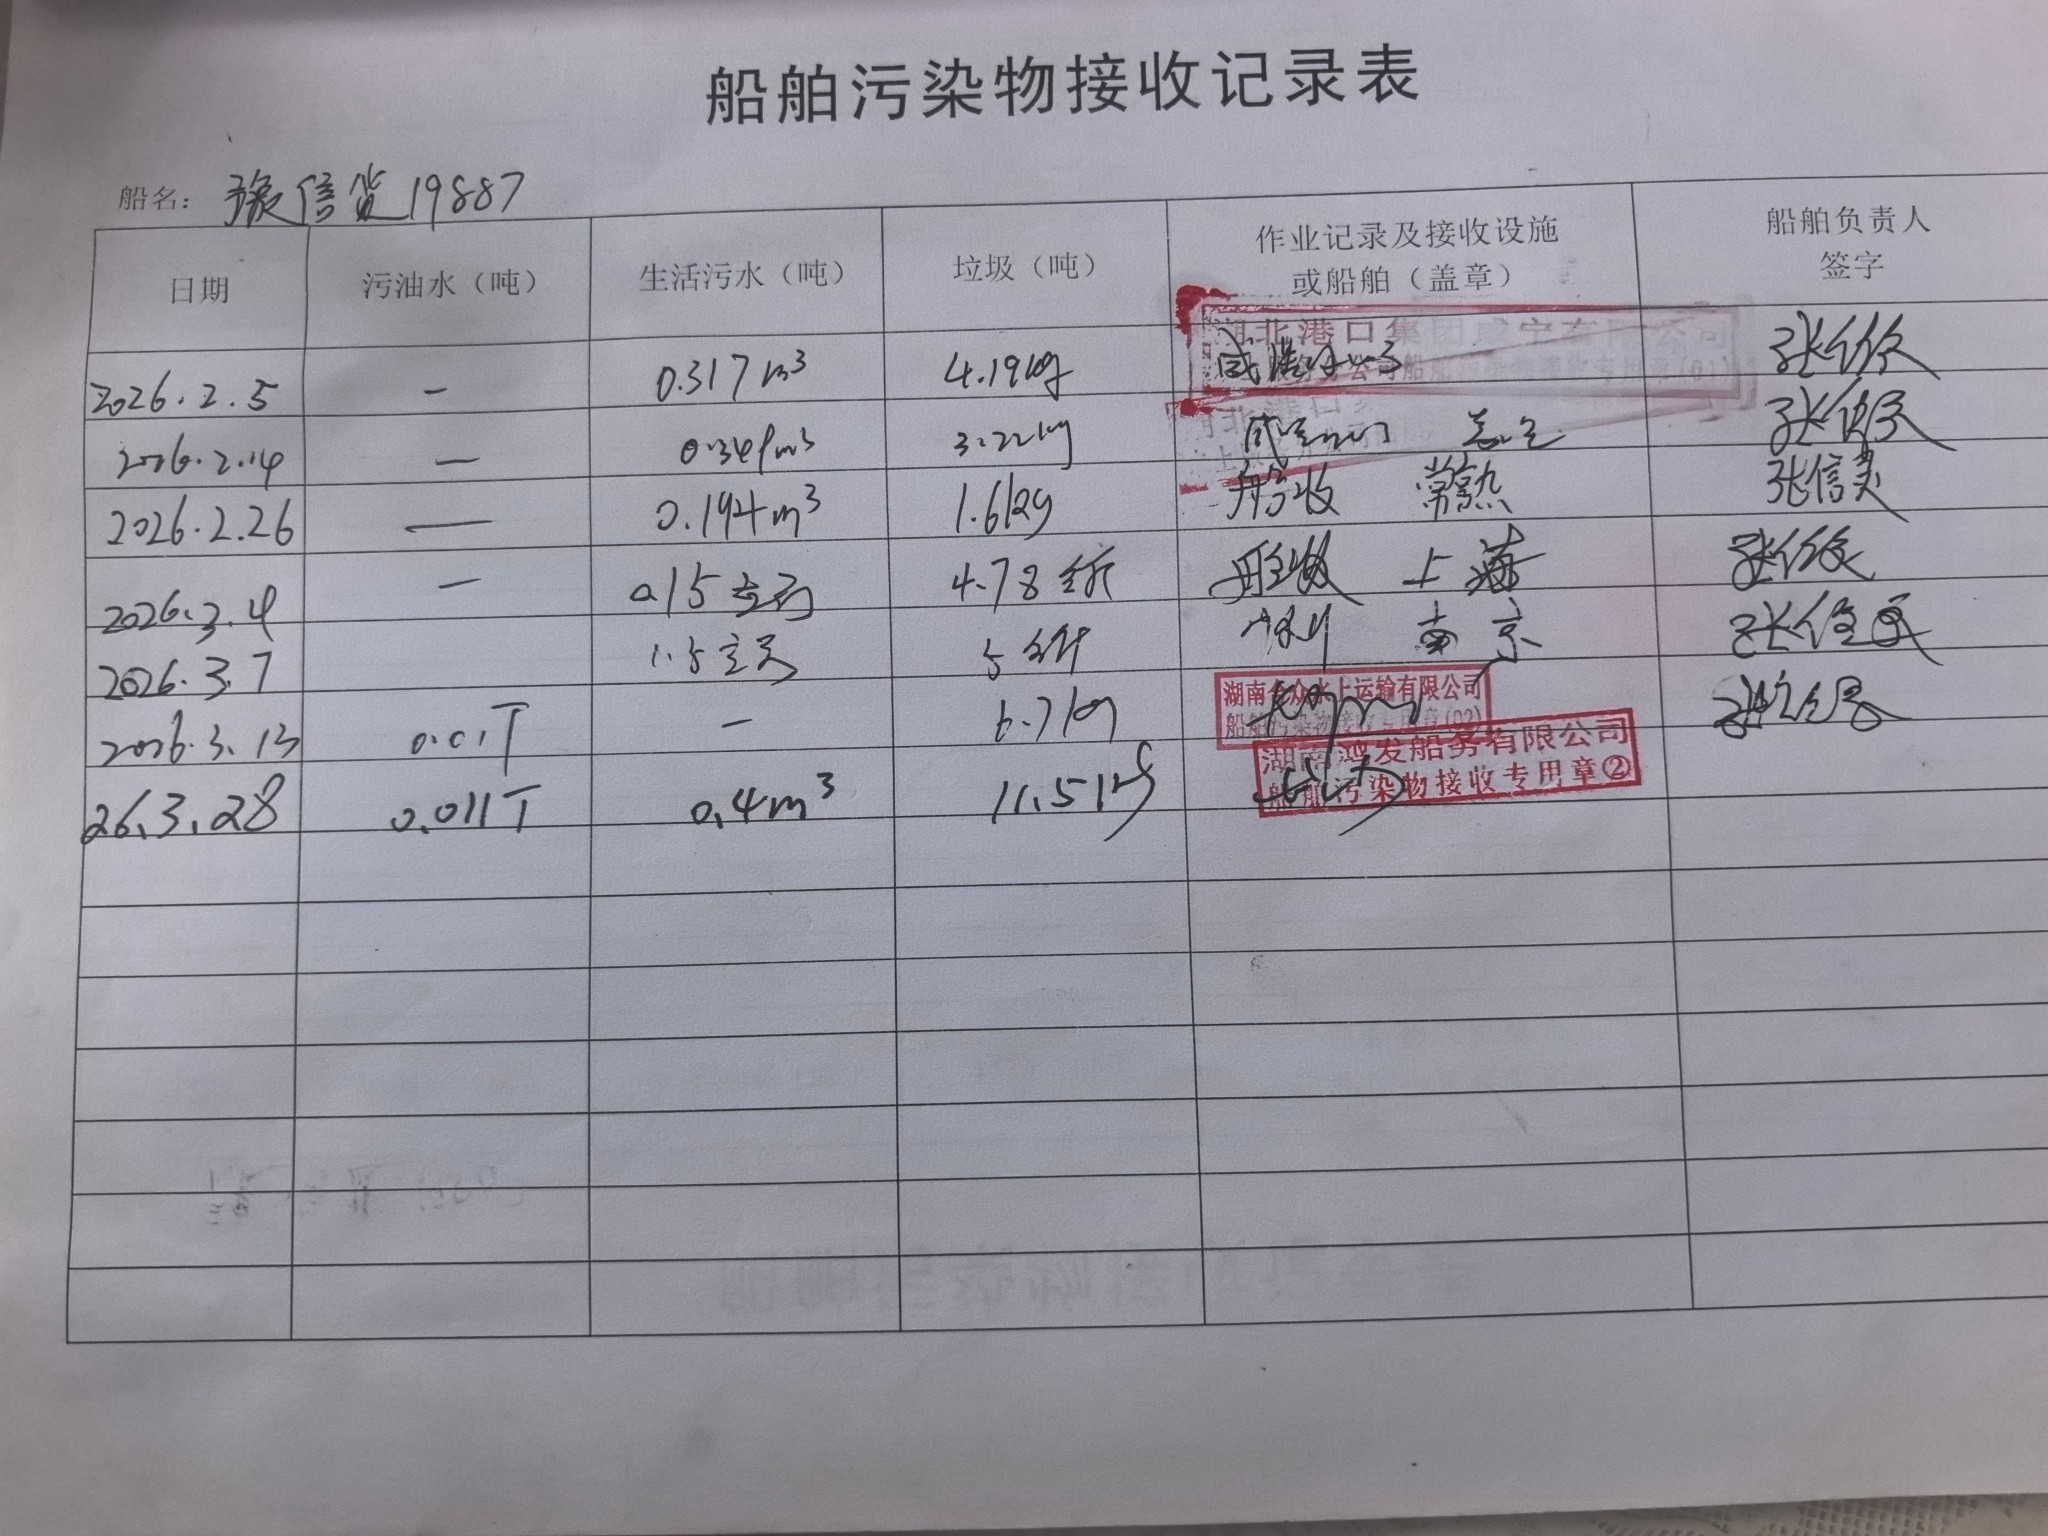 船舶污染物接收记录表
船名: 豫信货19887
日期 污油水（吨） 生活污水（吨） 垃圾（吨） 作业记录及接收设施或船舶（盖章） 船舶负责人签字
2026.2.5 — 0.317m³ 4.19kg
湖北港口集团咸宁有限公司
船舶污染物接收专用章(01)
2026.2.14 — 3.22kg 咸宁
2026.2.26 — 0.194m³ 1.6kg 船收 常熟 张信
2026.3.4 — 0.15立方 4.78公斤 船收 上海
2026.3.7 1.5立方 5公斤 南京
2026.3.13 0.01T — 6.7kg
湖南 众水上运输有限公司
船舶污染物接收专用章(02)
26.3.28 0.011T 0.4m³ 11.5kg 长沙
湖南鸿发船务有限公司
船舶污染物接收专用章②